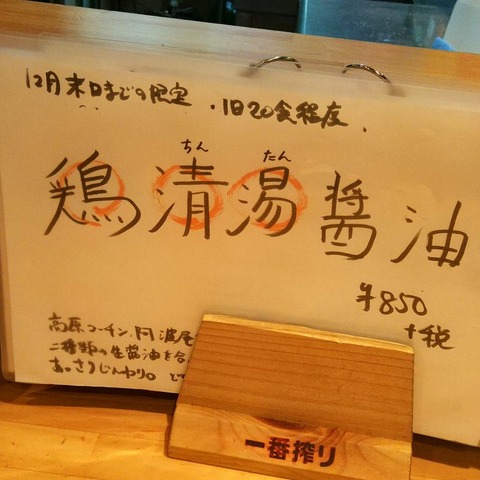 12月末日までの限定 ・1日20食程度
ちん たん
鶏清湯醤油
¥850
+税
高原コーチン、阿波尾
二種類の生醤油を合
あっさりじんわり。とて
一番搾り